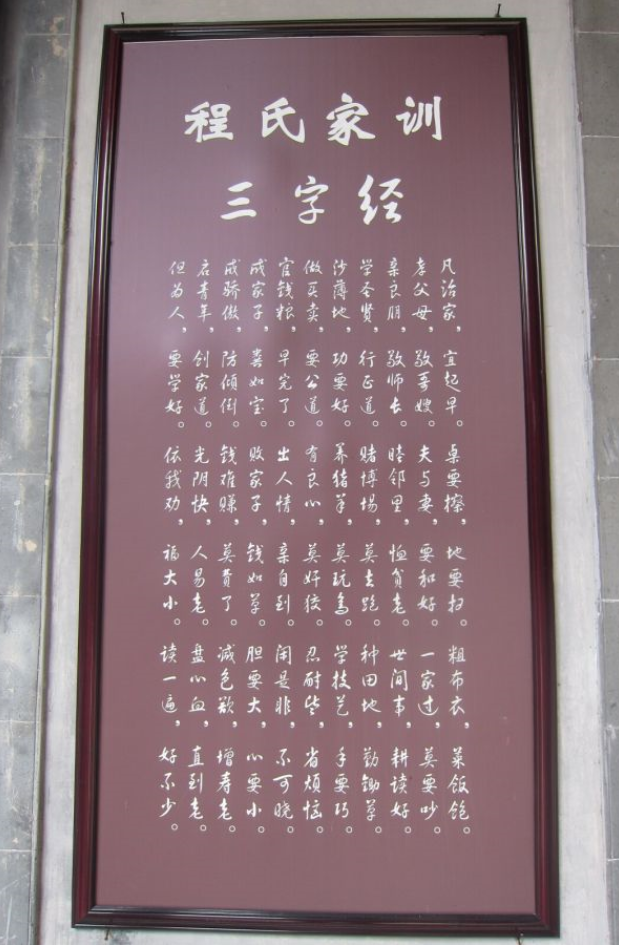 程氏家训
三字经
凡治家，宜起早。桌要擦，地要扫。粗布衣，菜饭饱。
孝父母，敬哥嫂。夫与妻，要和好。一家过，莫要吵。
亲良朋，敬师长。睦邻里，恤贫老。世间事，耕读好。
学圣贤，行正道。赌博场，莫去跑。种田地，勤锄草。
沙薄地，功要好。养猪羊，莫玩鸟。学技艺，手要巧。
做买卖，要公道。有良心，莫奸狡。忍耐些，省烦恼。
官钱粮，早完了。出人情，亲自到。闹是非，不可晓。
成家子，粪如宝。败家子，钱如草。胆要大，心要小。
戒骄傲，防倾倒。钱难赚，莫费了。减色欲，增寿老。
启青年，创家道。光阴快，人易老。盘心血，直到老。
但为人，要学好。依我劝，福大小。读一遍，好不少。